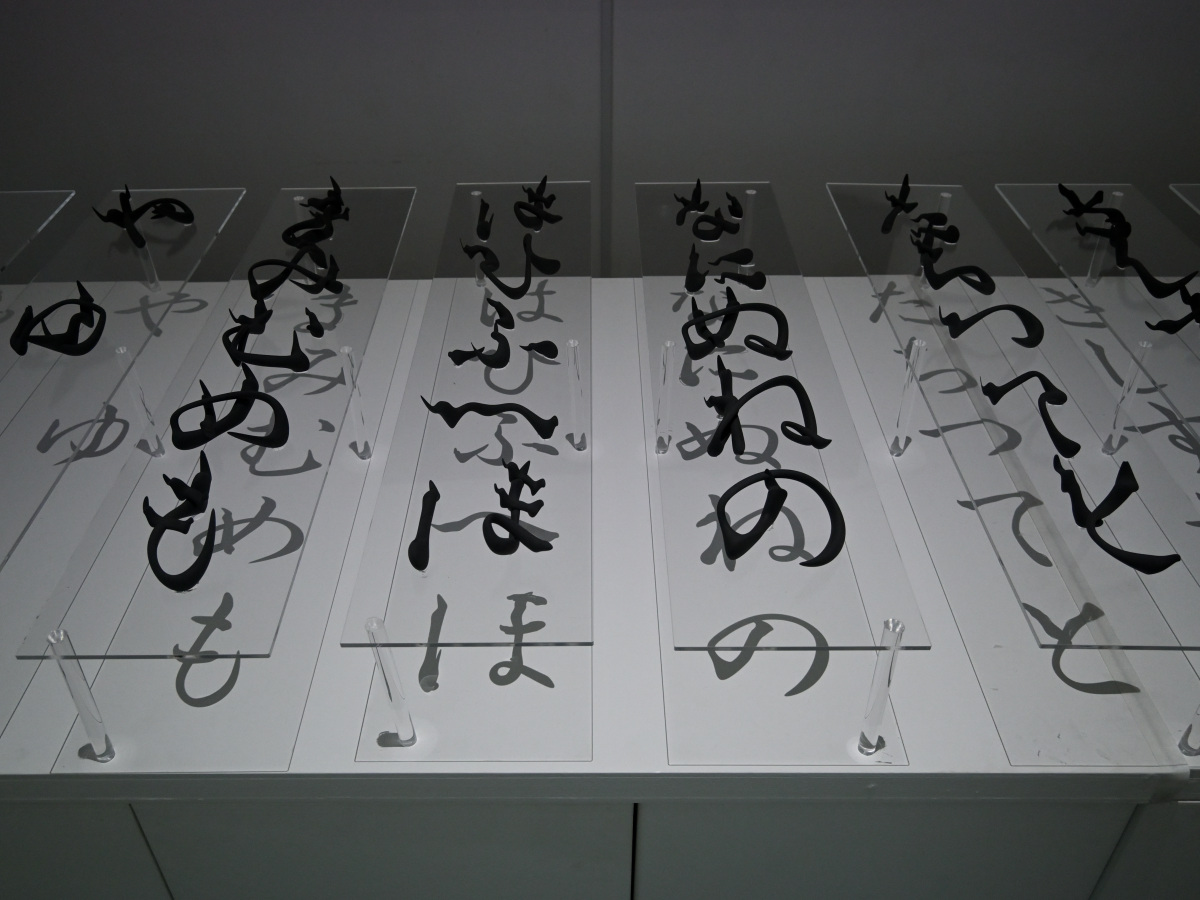 さしす
たちつてと
なにぬねの
はひふへほ
まみむめも
やゆ